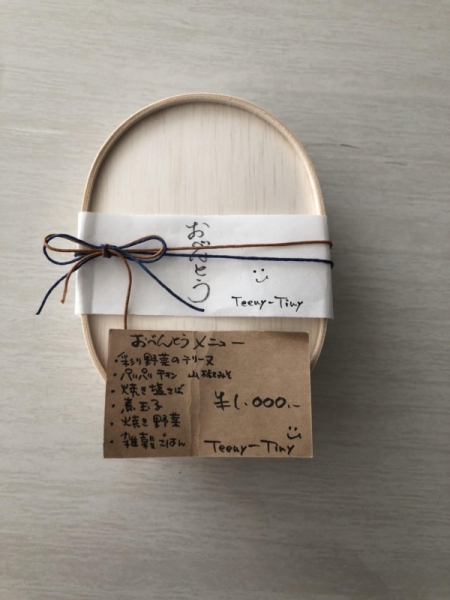 おべんとう
Teeny-Tiny
おべんとうメニュー
・彩り野菜のテリーヌ
・パリパリチキン 山椒みそ
・焼き塩さば
・煮玉子
・焼き野菜
・雑穀ごはん
¥1,000.-
Teeny-Tiny